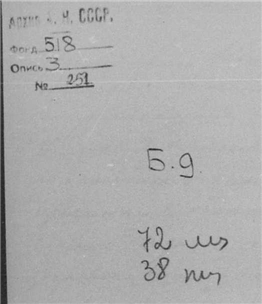 АРХИВ А. Н. СССР.
Фонд 518
Опись 3
№ 251
Б.д.
72 лл
38 лл